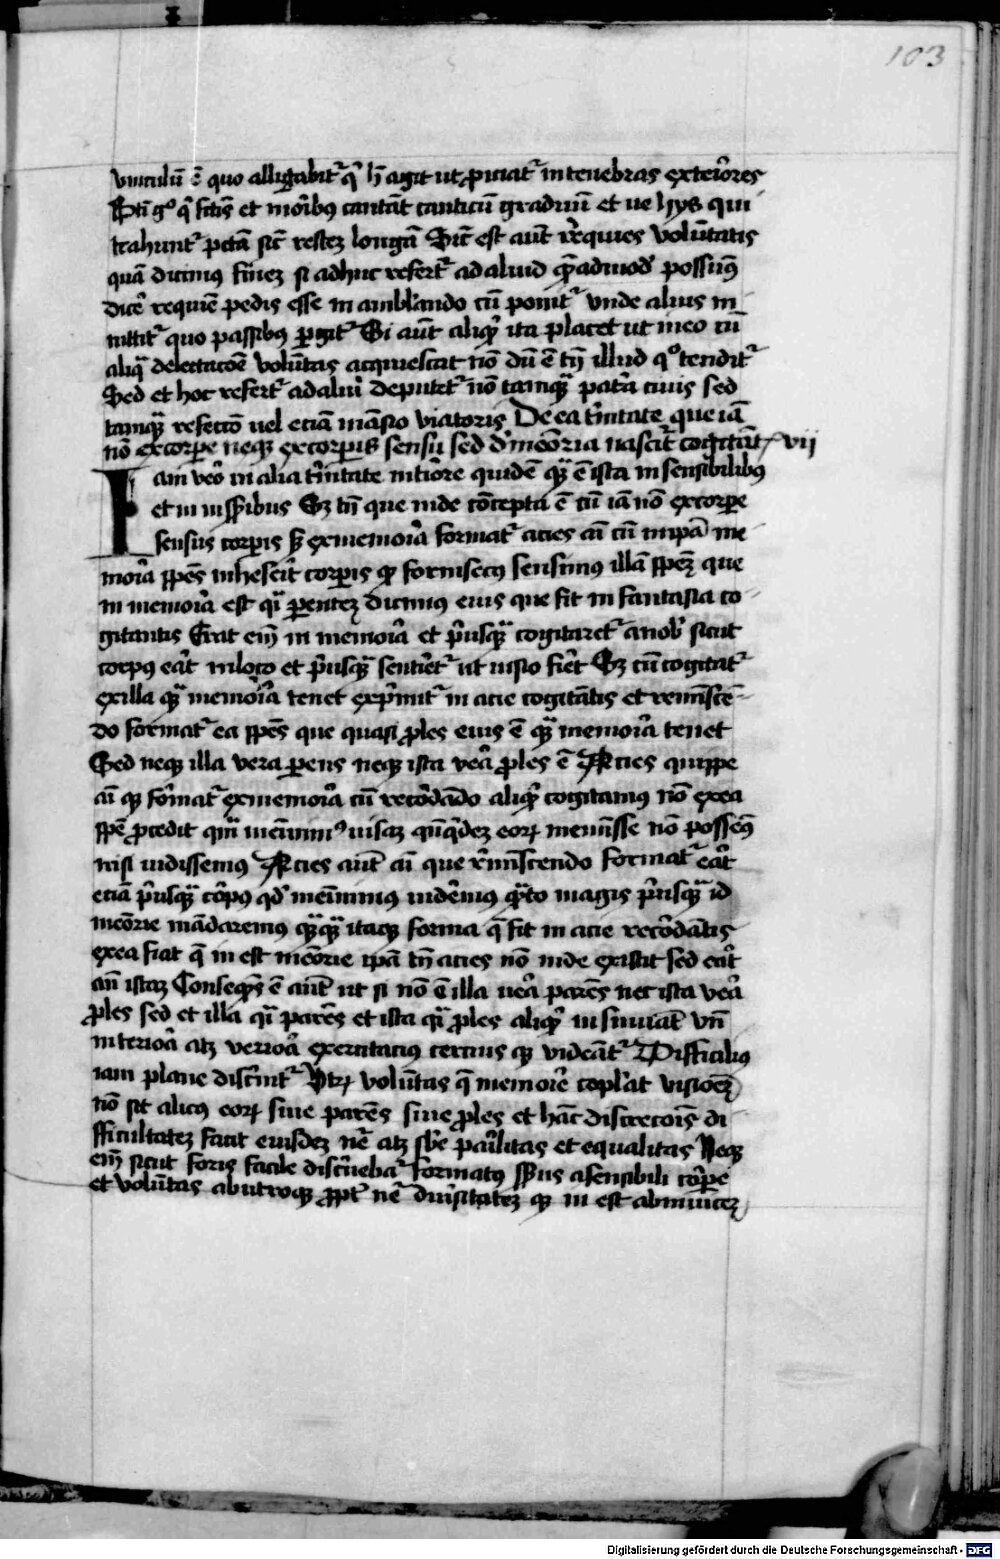 103
vinculū ē quo alligabit᷑ qͥ h̄ agit ut ꝓiciat᷑ in tenebras exteriores
Btī gͦ qͥ fctīs et moribꝰ cantāt canticū graduū et ve hys qui
trahunt᷑ pctā sic̄ restez longā Sic̄ est aūt reqⁱes volūtatis
quā dicimꝰ finez si adhuc refert᷑ ad aliud qͤ̄admod᷒ possumꝰ
dicͤ requiē pedis esse in amblando cū ponit᷑ vnde alius in
nittit᷑ quo passibꝰ ꝑgit᷑ Si aūt aliqͥd ita placet ut in eo cū
aliqᷓ delectacōe volūtas acquiescat nō dū ē tn̄ illud qͦ tendit᷑
Sed et hoc refert᷑ ad aliud deputet᷑ nō tamqᷓ pat̄ia ciuis sed
tamqᷓ refectō vel etiā māsio viatoris De ea t̄nitate que iā
nō ex corꝑe neqꝫ ex corꝑis sensu sed d᷒ meōria nascit᷑ cogitāt᷑ vii
Iam vero in alia t̄nitate int̄iore quidē qᷓ ē ista in sensibilibꝰ
et in nis ſꝑibus Sꝫ tn̄ que inde cōcepta ē cū iā nō ex corꝑe
sensus corꝑis sꝫ ex memoria format᷑ acies aī cū in ip̄a me
moria spēs inheserit corꝑis qͣ forinsecꝰ sensimꝰ illā spēꝫ que
in memoria est qͣi ꝑentez dicimus eius que fit in fantasia co
gitantis Erat eiͫ in memoria et pͥusqᷓ cogitaret᷑ a nob᷒ sicut
corpꝰ erat in loco et pͥusqᷓ sentiret᷑ ut uisio fieret Sꝫ cū cogitat᷑
ex illa qᷓ memoria tenet expͥmit᷑ in acie cogitātis et remīscē
do format᷑ ea spēs que quasi ꝓles eius ē qᷓ memoria tenet
Sed neqꝫ illa vera ꝑens neqꝫ ista vera ꝓles ē Acies quippe
aī qꝫ format᷑ ex memoria cū recordādo aliqͥd cogitamꝰ nō ex ea
spē ꝓcedit qͣm meminimꝰ uisaꝫ qn̄qͥdez eoꝝ meminisse nō possemꝰ
nisi uidissemus Acies aūt aī que reminiscendo format᷑ erat
etiā pͥusqᷓ corpus qd᷒ meminimus videremus qᷓto magis pͥusqᷓ id
meōrie mādaremus qᷓqᷓ itaqꝫ forma q̄ fit in acie recordātis
ex ea fiat q̄ in est meōrie ip̄a tn̄ acies nō inde existit sed erat
an̄ istaꝫ Consequēs ē aūt ut si nō ē illa vera parēs nec ista vera
ꝓles sed et illa qͣi parēs et ista qͣi ꝓles aliqͥd insinuāt vn̄
interiora atqꝫ veriora exercitacius cercius qꝫ videāt᷑ Difficilius
iam plane discernit᷑ Vtꝝ volūtas q̄ memorie coplat visionē
nō sit alicꝰ eoꝝ siue parēs siue ꝓles et hāc discrecōis di
fficultateꝫ facit eiusdeꝫ nē atqꝫ sbē parilitas et equalitas Neqꝫ
eiͫ sicut foris facile discernebat᷑ formatus sensus a sensibili corꝑe
et volūtas ab utroqꝫ ꝓpt᷑ nē diuersitateꝫ qꝫ in est ab inuiceꝫ
Digitalisierung gefördert durch die Deutsche Forschungsgemeinschaft - DFG